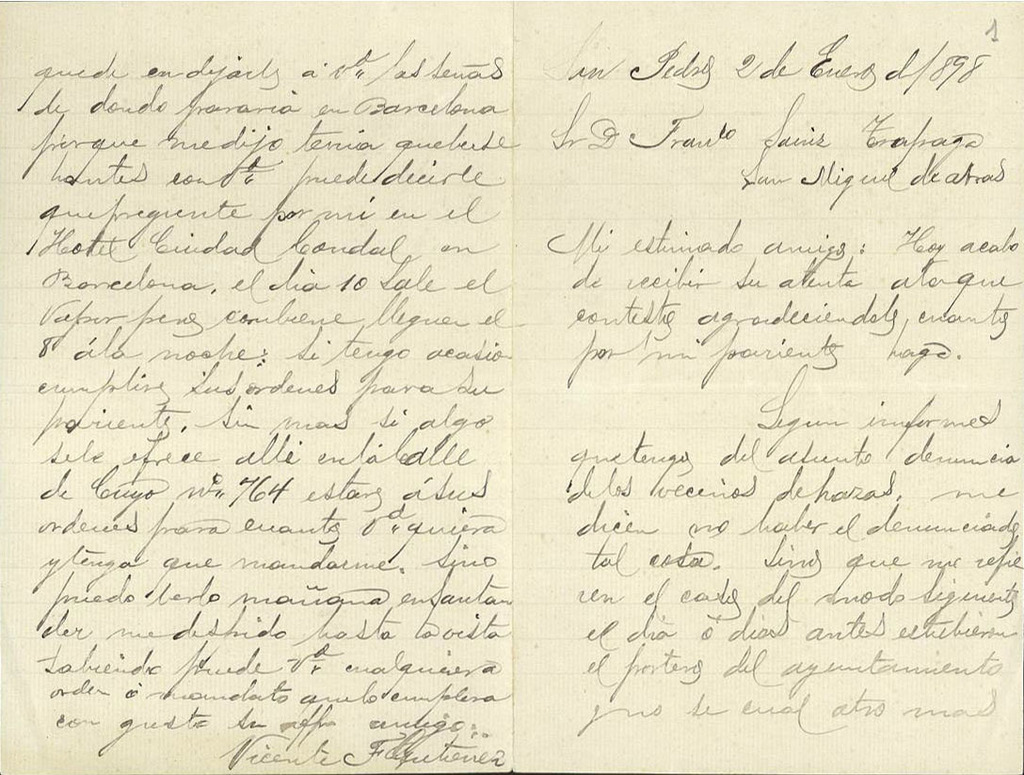 1
San Pedro 2 de Enero d/1898
Sr D Franco Sainz Trapaga
San Miguel de atras
Mi estimado amigo: Hoy acabo
de recibir su atenta ata que
contesto agradeciendole, cuanto
por mi pariente haga.
Segun imformes
que tengo del asunto denuncia
de los vecenos de hazas, me
dicen no haber el denunciado
tal cosa. Sino que me refie
ren el caso del modo siguiente
el dia ó dias antes estubieron
el portero del ayuntamiento
y no se cual otro mas
quede en dejarle á Vd. las señas
de dondo pararia en Barcelona
porque me dijo tenia que berse
hantes con Vd. puede decirle
que pregunte por mi en el
Hotel Ciudad Condal en
Barcelona, el dia 10 sale el
Vapor pero combiene lleguen el
8 á la noche: si tengo ocasion
cumplire sus ordenes para su
pariente. Sin mas si algo
se le ofrece alli en la Calle
de Cuyo no. 764 estare á sus
ordenes para cuanto Vd. quiera
y tenga que mandarme. Sino
puedo berlo mañana en Santan
der me despido hasta la vista
sabiendo puede Vd. cualquiera
orden ó mandato que lo cumplera
con gusto su affo amigo:
Vicente F Gutierrez